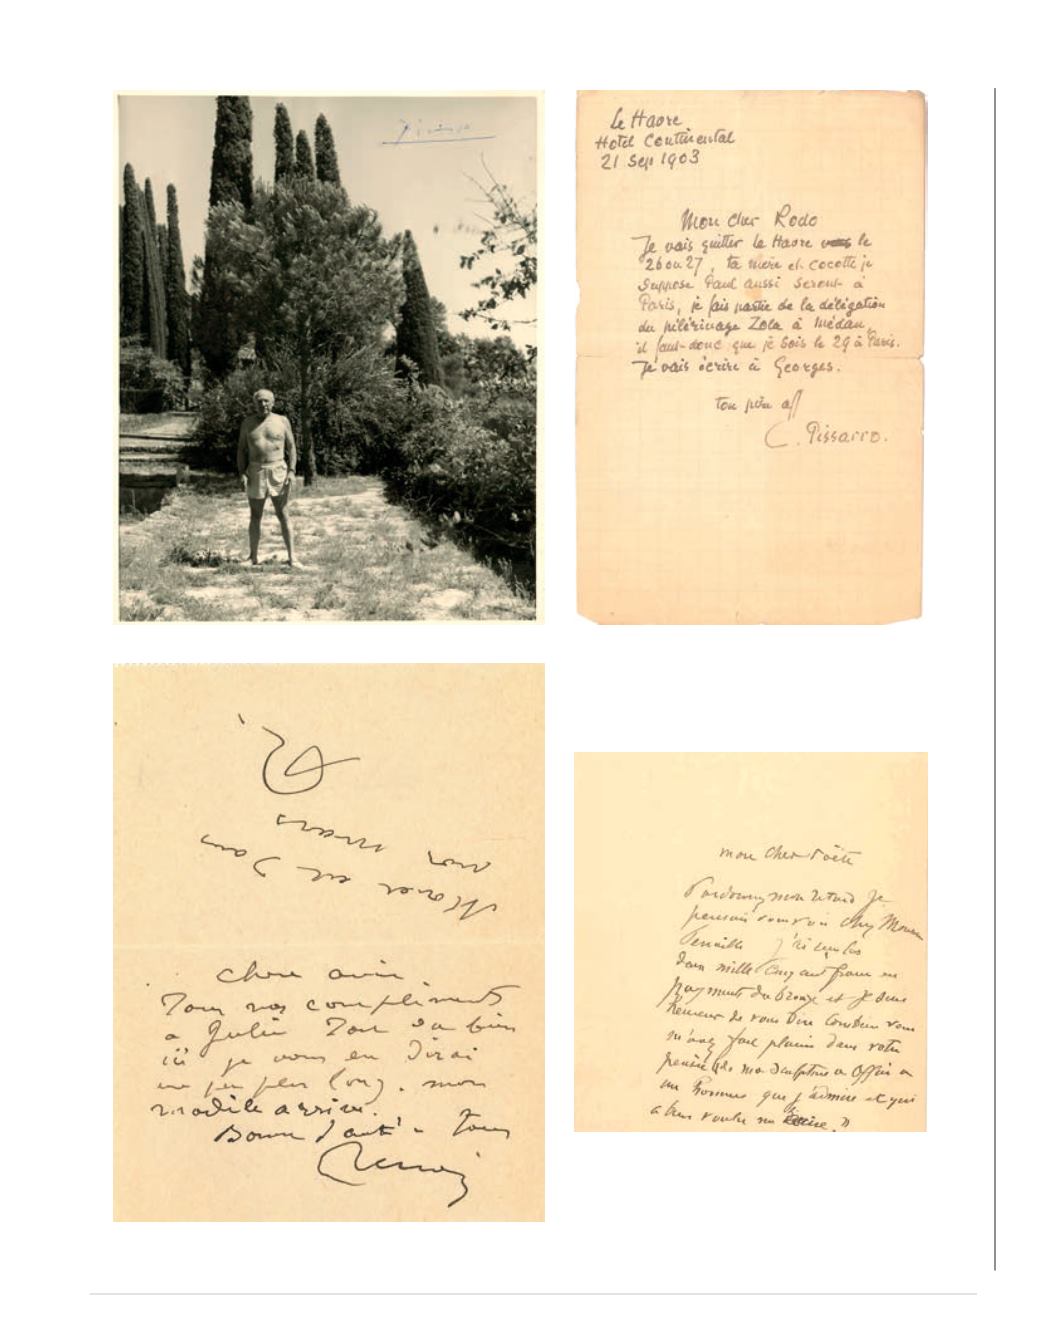 Picasso
Le Havre
Hotel Continental
21 Sep 1903
Mon cher Rodo
Je vais quitter le Havre le
26 ou 27, ta mère et cocotte je
suppose Paul aussi seront à
Paris, je fais partie de la délégation
du pélérinage Zola à Médan,
il faut-donc que je sois le 29 à Paris.
Je vais écrire à Georges.
ton père aff
C. Pissarro.
chere amie
Tous nos compliments
a Julie Tout va bien
ici je vous en dirai
un peu plus long. mon
modèle arrive.
Bonne santé a tous
Renoir
mon cher Poëte
Pardonnez mon retard je
pensais vous voir chez
Fenaille j'ai reçu les
deux mille cinq cent francs en
payment du bronze et je suis
heureux de vous dire combien vous
m'avez fait plaisir dans votre
pensée de ma sculpture a offrir a
un homme que j'admire et qui
a bien voulu